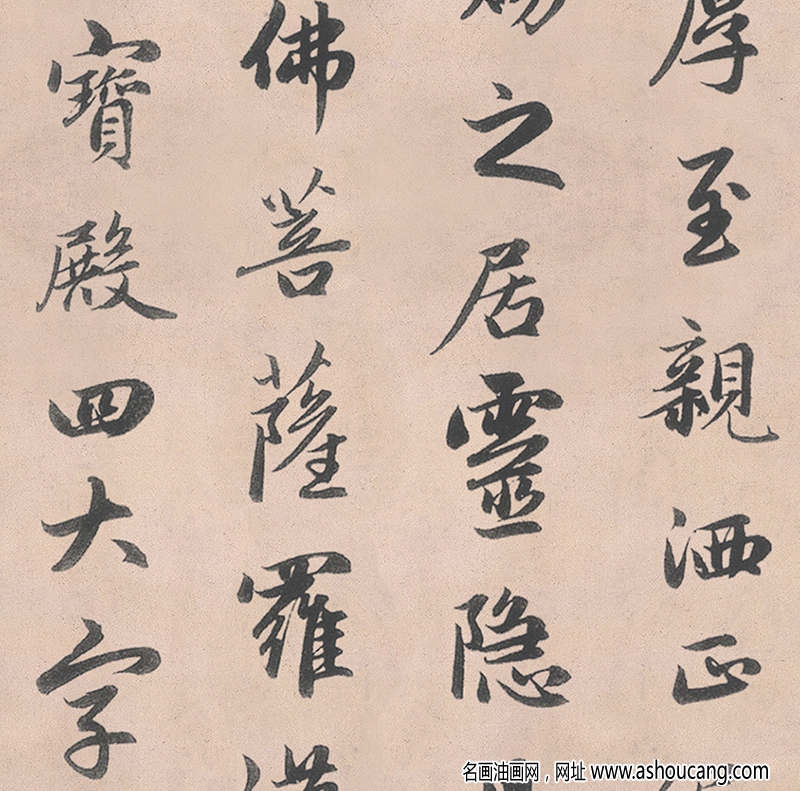 厚至親洒正
之居靈隐
佛菩薩羅
寶殿四大字
名画油画网，网址 www.ashoucang.com